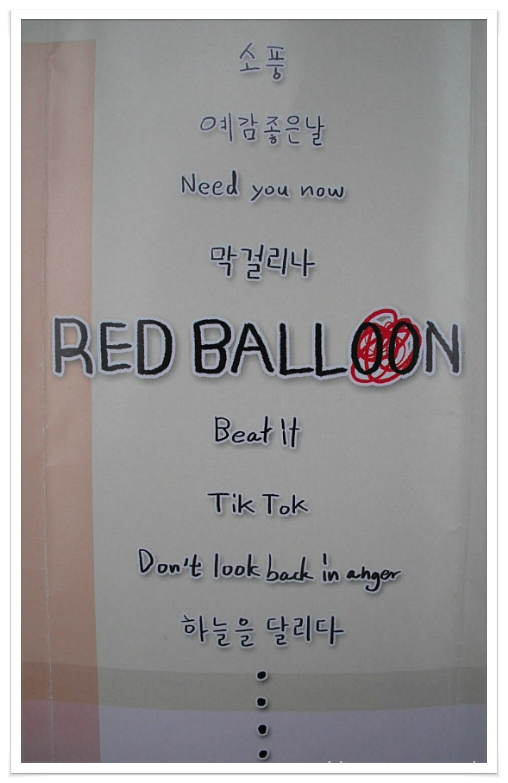 소풍
예감좋은날
Need you now
막걸리나
RED BALLOON
Beat It
Tik Tok
Don't look back in anger
하늘을 달리다